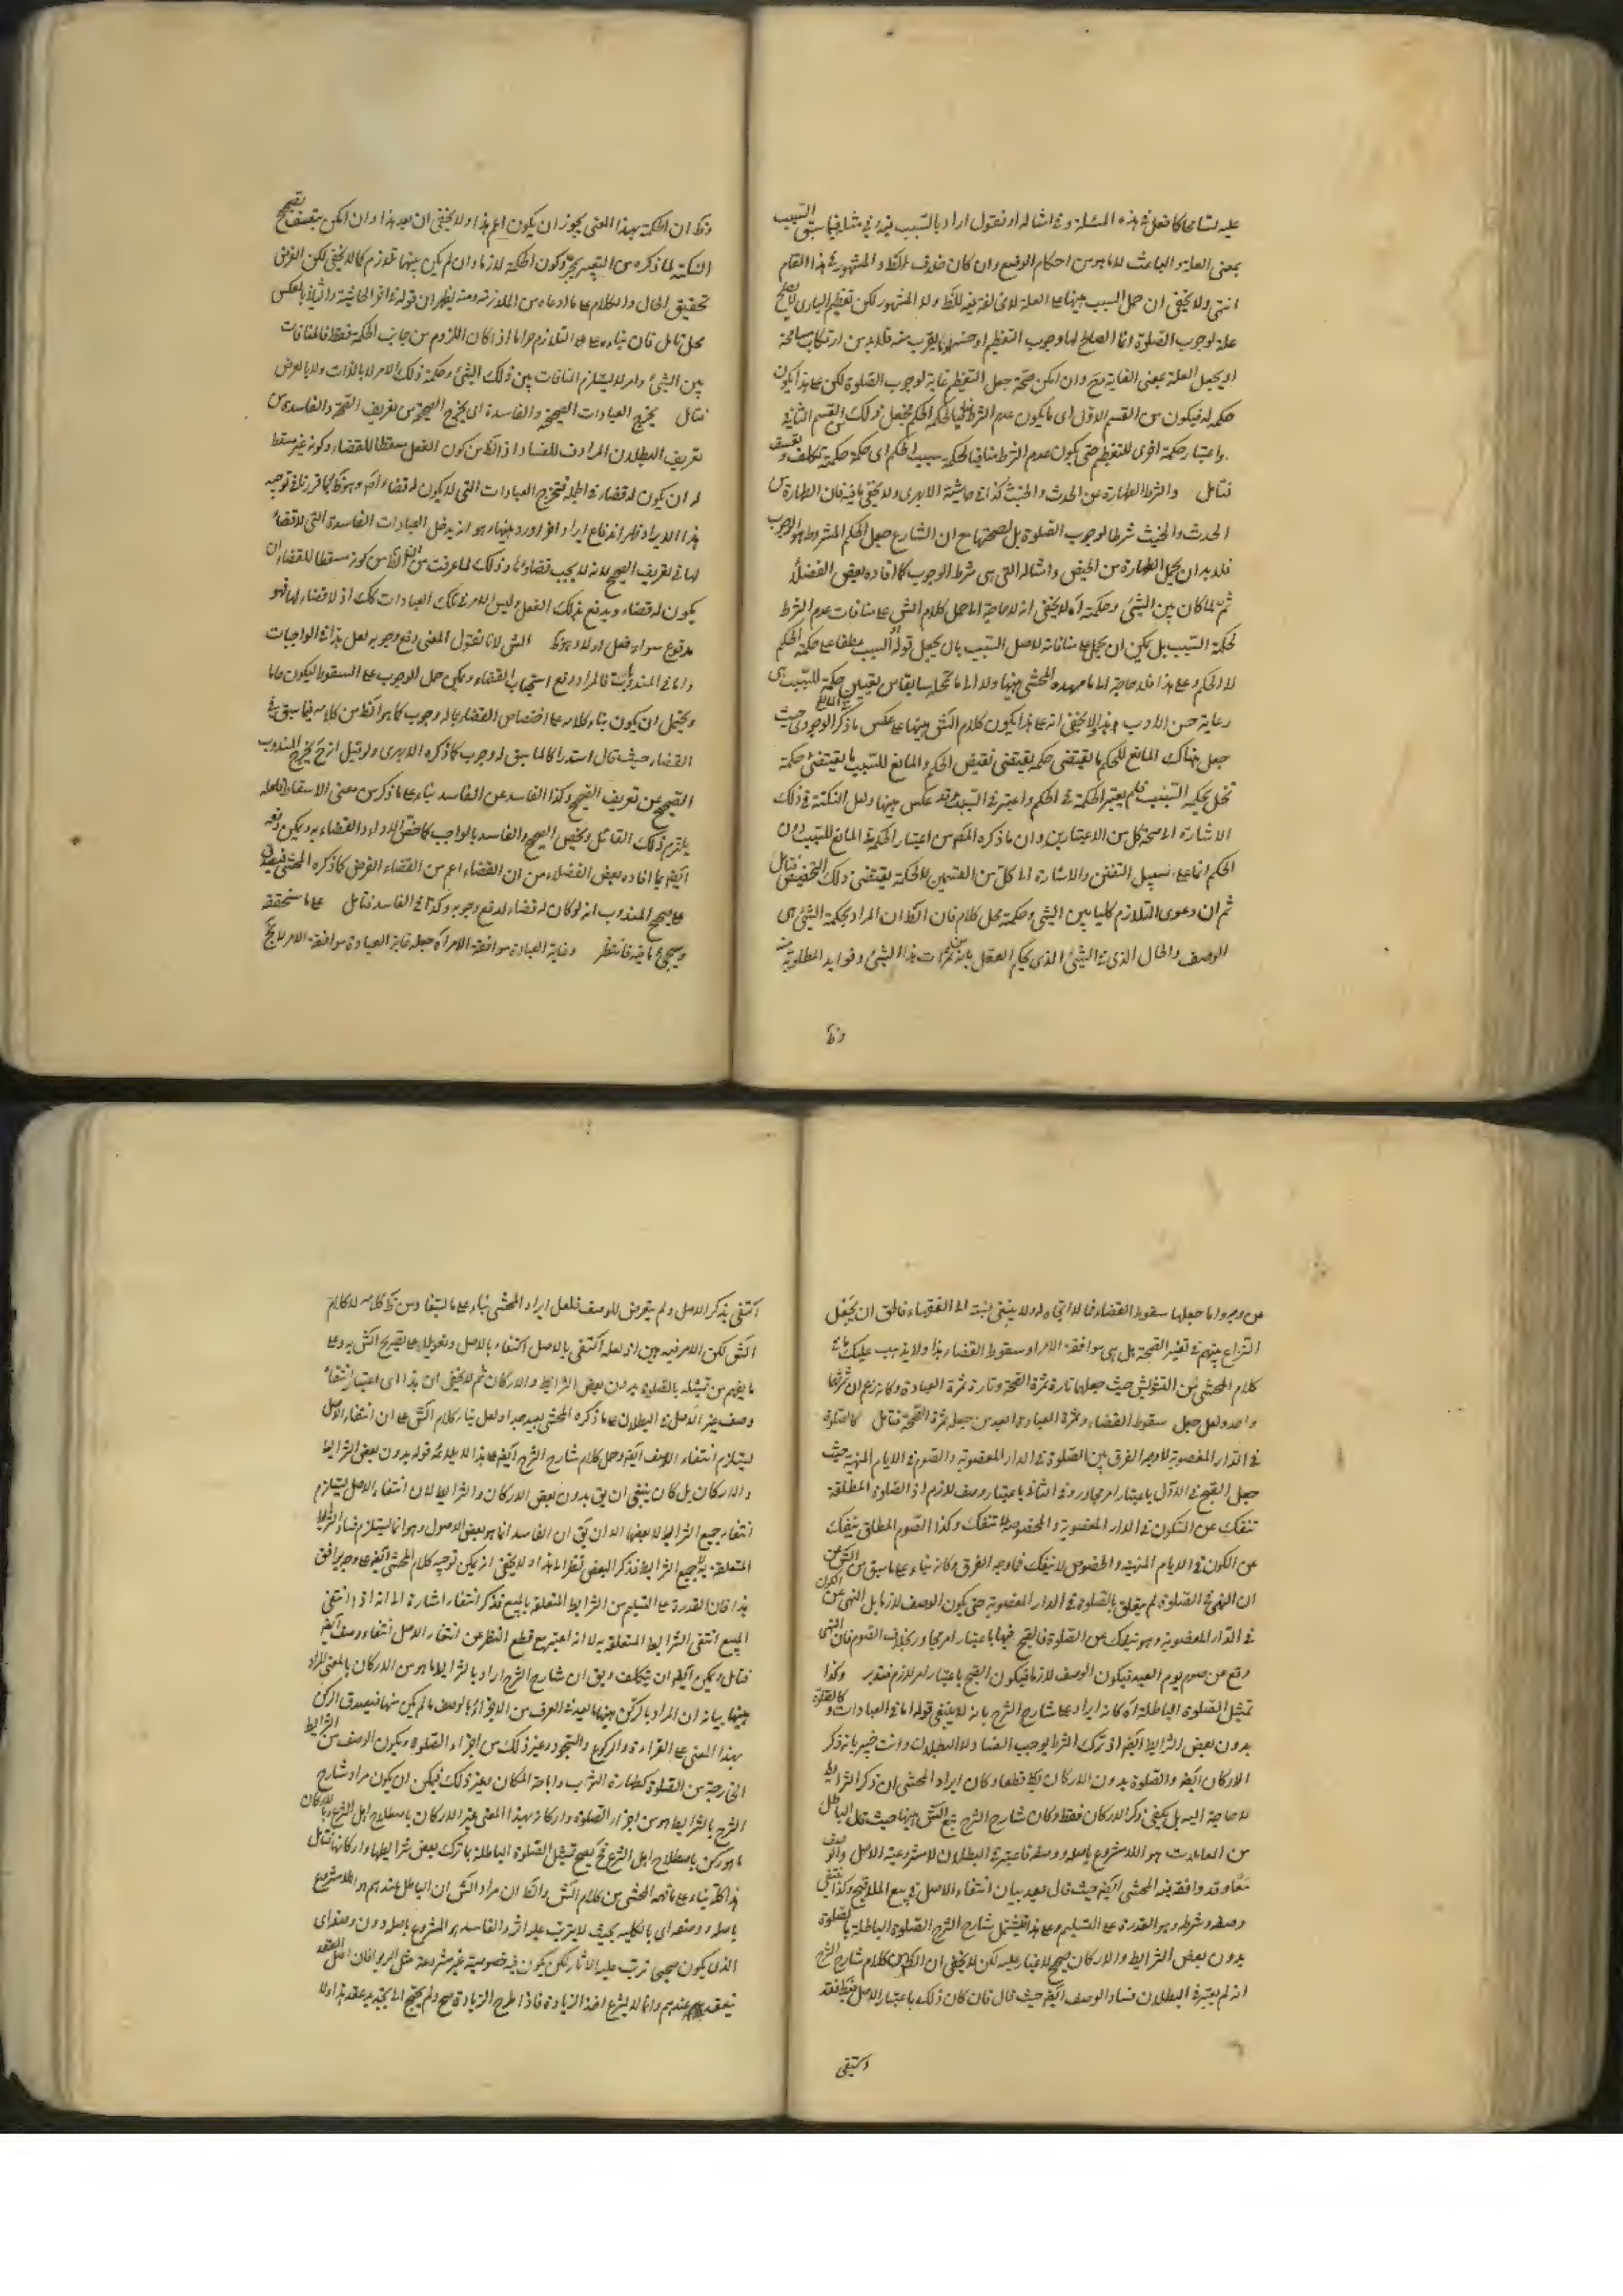 عليه تسامحا كما فعل في هذه المسئلة وفي امثاله او نقول اراد بالسبب فيه في مثله فيما سبق السبب
بمعنى العلة والباعث لا ما هو من احكام الوضع وان كان خلاف الظ والمشهور في هذا المقام
انتهى ولا يخفى ان حمل السبب ههنا على العلة لا مخالفة فيه للظ ولا المشهور لكن تعظيم الباري لا يصلح
علة لوجوب الصلوة انما الصالح لها وجوب التعظيم او حسنه او ما يقرب منه فلا بد من ارتكاب مسامحة
او يجعل العلة بمعنى الغاية مع وان امكن صحة جعل التعظيم غاية لوجوب الصلوة لكن على هذا يكون
حكمه له فيكون من القسم الاول اى ما يكون عدم الشرط منافيا لحكمة الحكم فجعل ذلك من القسم الثاني
واعتبار حكمة اخرى للتعظيم حتى يكون عدم الشرط منافيا لحكمة سبب الحكم اى حكمة حكمة تكلف وتعسف
فتأمل والشرط الطهارة من الحدث والخبث كذا في حاشية الابهرى ولا يخفى ما فيه فان الطهارة من
الحدث والخبث شرطا لوجوب الصلوة بل لصحتها مع ان الشارع جعل الحكم المشروط هو الوجوب
فلا بد ان يحمل الطهارة من الحيض وامثاله التي هي شرط الوجوب كما افاده بعض الفضلاء
ثم لما كان بين الشئ وحكمته آه لا يخفى انه لا حاجة الى حمل كلام الش على منافات عدم الشرط
لحكمة السبب بل يمكن ان يحمل على منافاته لاصل السبب بان يجعل قوله او السبب عطفا على حكمة الحكم
لا الحكم وعلى هذا فلا حاجة الى ما مهده المحشى ههنا ولا الى ما تمحله سابقا من تعيين حكمة للسبب هى
رعاية حسن الادب هذا ولا يخفى انه على هذا يكون كلام الش ههنا على عكس ما ذكر الوجودى حيث
جعل هناك المانع للحكم ما يقتضى حكمة يقتضى نقيض الحكم والمانع للسبب ما يقتضى حكمة
تخل بحكمة السبب فلم يعتبر الحكمة في الحكم واعتبر في السبب وقد عكس ههنا ولعل النكتة في ذلك
الاشارة الى صحة كل من الاعتبارين وان ما ذكره المص من اعتبار الحكمة في المانع للسبب دون
الحكم انما على سبيل التفنن والاشارة الى كل من القسمين لا لحكمة يقتضى ذلك التخصيص فتأمل
ثم ان دعوى التلازم كليا بين الشئ وحكمته محل كلام فان الظ ان المراد بحكمة الشئ هى
الوصف والحال الذى في الشئ الذى يحكم العقل بانه من ثمرات هذا الشئ وفوايد المطلوبة منه
وظ
وظ ان الحكمة بهذا المعنى يجوز ان يكون اعم هذا ولا يخفى ان بعد هذا وان امكن بتعسف تصحيح
النكتة لما ذكره من التفسير بمجرد كون الحكمة لازما وان لم يكن بينهما تلازم كما لا يخفى لكن الغرض
تحقيق الحال والكلام على ما ادعاه من الملازمة ومنه يظهر ان قوله في اخر الحاشية واثباته بالعكس
محل تأمل فان بناءه على التلازم صراحا اذ اذا كان اللزوم من جانب الحكمة فقط فالمنافات
بين الشئ وامر لا يستلزم المنافات بين ذلك الشئ وحكمة ذلك الامر لا بالذات ولا بالعرض
فتأمل يخرج العبادات الصحيحة والفاسدة اى يخرج الصحيح من تعريف الصحة والفاسدة من
تعريف البطلان المرادف للفساد اذ الظ من كون الفعل مسقطا للقضاء وكونه غير مسقط
له ان يكون له قضاء في الجملة فتخرج العبادات التى لا يكون له قضاء اصلا وهو ظ كما قررنا في توجيه
هذا الايراد ظهر اندفاع ايراد اخر اورد ههنا وهو انه يدخل العبادات الفاسدة التى لا قضاء
لها في تعريف الصحيح لانه لا يجب قضاؤها وذلك لما عرفت من ان الظ من كونه مسقطا للقضاء ان
يكون له قضاء ويدفع بذلك الفعل وليس الامر في تلك العبادات كك اذ لا قضاء لها فهو
مدفوع سواء فعل او لا وهو ظ الش لانا نقول المعنى رفع وجوبه لعل هذا في الواجبات
واما في المندوبات فالمراد رفع استحباب القضاء ويمكن حمل الوجوب على السقوط ليكون عاما
ويحتمل ان يكون بناء كلامه على اختصاص القضاء بما له وجوب كما هو الظ من كلامه فيما سبق في
القضاء حيث قال استدراكا لما سبق له وجوب كما ذكره الابهرى ولو قيل انه ح يخرج المندوب
الصحيح عن تعريف الصحيح وكذا الفاسد عن الفاسد بناء على ما ذكر من معنى الاسقاط فلعله
يلتزم ذلك القائل ويخص الصحيح والفاسد بالواجب كما خص الاداء والقضاء به ويمكن دفعه
ايضا بما افاده بعض الفضلاء من ان القضاء اعم من القضاء الفرضى كما ذكره المحشى فيصدق
على صحيح المندوب انه لو كان له قضاء لدفع وجوبه وكذا في الفاسد فتأمل على ما ستحققه
ويجئ ما فيه فانتظر وغاية العبادة موافقة الامر آه جعله غاية العبادة موافقة الامر لا يخ
عن وجه واما جعلها سقوط القضاء فلا اتجاه له ولا ينبغى نسبته الى الفقهاء فالحق ان يجعل
النزاع بينهم في تفسير الصحة هل هى موافقة الامر او سقوط القضاء هذا ولا يذهب عليك ما في
كلام المحشى من التشويش حيث جعلها تارة ثمرة الصحة وتارة ثمرة العبادة وكانه زعم ان ثمرتهما
واحد ولعل جعل سقوط القضاء ثمرة العبادة ابعد من جعله ثمرة الصحة فتأمل كالصلوة
في الدار المغصوبة لا وجه الفرق بين الصلوة في الدار المغصوبة والصوم في الايام المنهية حيث
جعل القبح في الاول باعتبار امر مجاور وفي الثاني باعتبار وصف لازم اذ الصلوة المطلقة
تنفك عن السكون في الدار المغصوبة والمخصوصة لا تنفك وكذا الصوم المطلق ينفك
عن الكون في الايام المنهية والمخصوص لا ينفك فما وجه الفرق وكانه بناء على ما سبق من الش من
ان النهى في الصلوة لم يتعلق بالصلوة في الدار المغصوبة حتى يكون الوصف لازما بل النهى عن الكون
في الدار المغصوبة وهو ينفك عن الصلوة فالقبح فيها باعتبار امر مجاور بخلاف الصوم فان النهى
وقع عن صوم يوم العيد فيكون الوصف لازما فيكون القبح باعتبار امر لازم فتدبر وكذا
تمثيل الصلوة الباطلة آه كانه ايراد على شارح الشرح بانه لا ينبغى قوله اما في العبادات فكالصلوة
بدون بعض الشرايط ايضا اذ ترك الشرط يوجب الفساد لا البطلان وانت خبير بانه ذكر
الاركان ايضا والصلوة بدون الاركان بط قطعا وكان ايراد المحشى ان ذكر الشرايط
لا حاجة اليه بل يكفى ذكر الاركان فقط وكان شارح الشرح تبع الش ههنا حيث قال الباطل
من المعاملات هو اللامشروع باصله ووصفه فاعتبر في البطلان لا مشروعية الاصل والوصف
معا وقد وافقه فيه المحشى ايضا حيث قال بعد بيان انتفاء الاصل في بيع الملاقيح وكذا ينتفى
وصفه وشرطه وهو القدرة على التسليم وعلى هذا فتمثيل شارح الشرح الصلوة الباطلة بالصلوة
بدون بعض الشرايط والاركان صحيح لا غبار عليه لكن لا يخفى ان الظ من كلام شارح الشرح
انه لم يعتبر في البطلان فساد الوصف ايضا حيث قال فان كان ذلك باعتبار الاصل فقط فقد
اكتفى
اكتفى بذكر الاصل ولم يتعرض للوصف فلعل ايراد المحشى بناء على ما يستفاد من ظ كلامه لا كلام
الش لكن الامر فيه هين اذ لعله اكتفى بالاصل اكتفاء بالاصل وتعويلا على تصريح الش به وعلى
ما يفهم من تمثيله بالصلوة بدون بعض الشرايط والاركان ثم لا يخفى ان هذا اى اعتبار انتفاء
وصف غير الاصل في البطلان على ما ذكره المحشى بعيد جدا ولعل بناء كلام الش على ان انتفاء الاصل
يستلزم انتفاء الوصف ايضا وحمل كلام شارح الشرح ايضا على هذا لا يلائمه قوله بدون بعض الشرايط
والاركان بل كان ينبغى ان يق بدون بعض الاركان والشرايط لان انتفاء الاصل يستلزم
انتفاء جميع الشرايط لا بعضها الا ان يق ان الفاسد انما هو بعض الاصول وهو انما يستلزم فساد الشرايط
المتعلقة به لا جميع الشرايط فذكر البعض نظرا الى هذا ولا يخفى انه يمكن توجيه كلام المحشى ايضا على وجه يوافق
هذا فان القدرة على التسليم من الشرايط المتعلقة بالمبيع فذكر انتفاءه اشارة الى انه اذا انتفى
المبيع انتفى الشرايط المتعلقة به لا انه اعتبر مع قطع النظر عن انتفاء الاصل انتفاء وصف ايضا
فتأمل ويمكن ايضا ان يتكلف ويق ان شارح الشرح اراد بالشرايط ما هو من الاركان بالمعنى المراد
ههنا بيانه ان المراد بالركن ههنا ما يعد في العرف من الاجزاء وبالوصف ما لم يكن منها فيصدق الركن
بهذا المعنى على القراءة والركوع والسجود وغير ذلك من اجزاء الصلوة ويكون الوصف من الشرايط
الخارجة من الصلوة كطهارة الثوب واباحة المكان وغير ذلك فيمكن ان يكون مراد شارح
الشرح بالشرايط ما هو من اجزاء الصلوة واركانه بهذا المعنى غير الاركان باصطلاح اهل الشرع وبالاركان
ما هو ركن باصطلاح اهل الشرع فح يصح تمثيل الصلوة الباطلة بما ترك بعض شرايطها واركانها فتأمل
هذا كله بناء على ما فهمه المحشى من كلام الش والظ ان مراد الش ان الباطل عندهم هو اللامشروع
باصله ووصفه اى بالكلية بحيث لا يترتب عليه اثر والفاسد هو المشروع باصله دون وصفه اى
الذى يكون صحيحا ترتب عليه الاثار لكن يكون فيه خصوصية غير مشروعة مثل الربوا فان اصل العقد
ينعقد عندهم وانما لا يشرع اخذ الزيادة فاذا طرح الزيادة صح ولم يحتج الى تجديد عقد هذا ولا